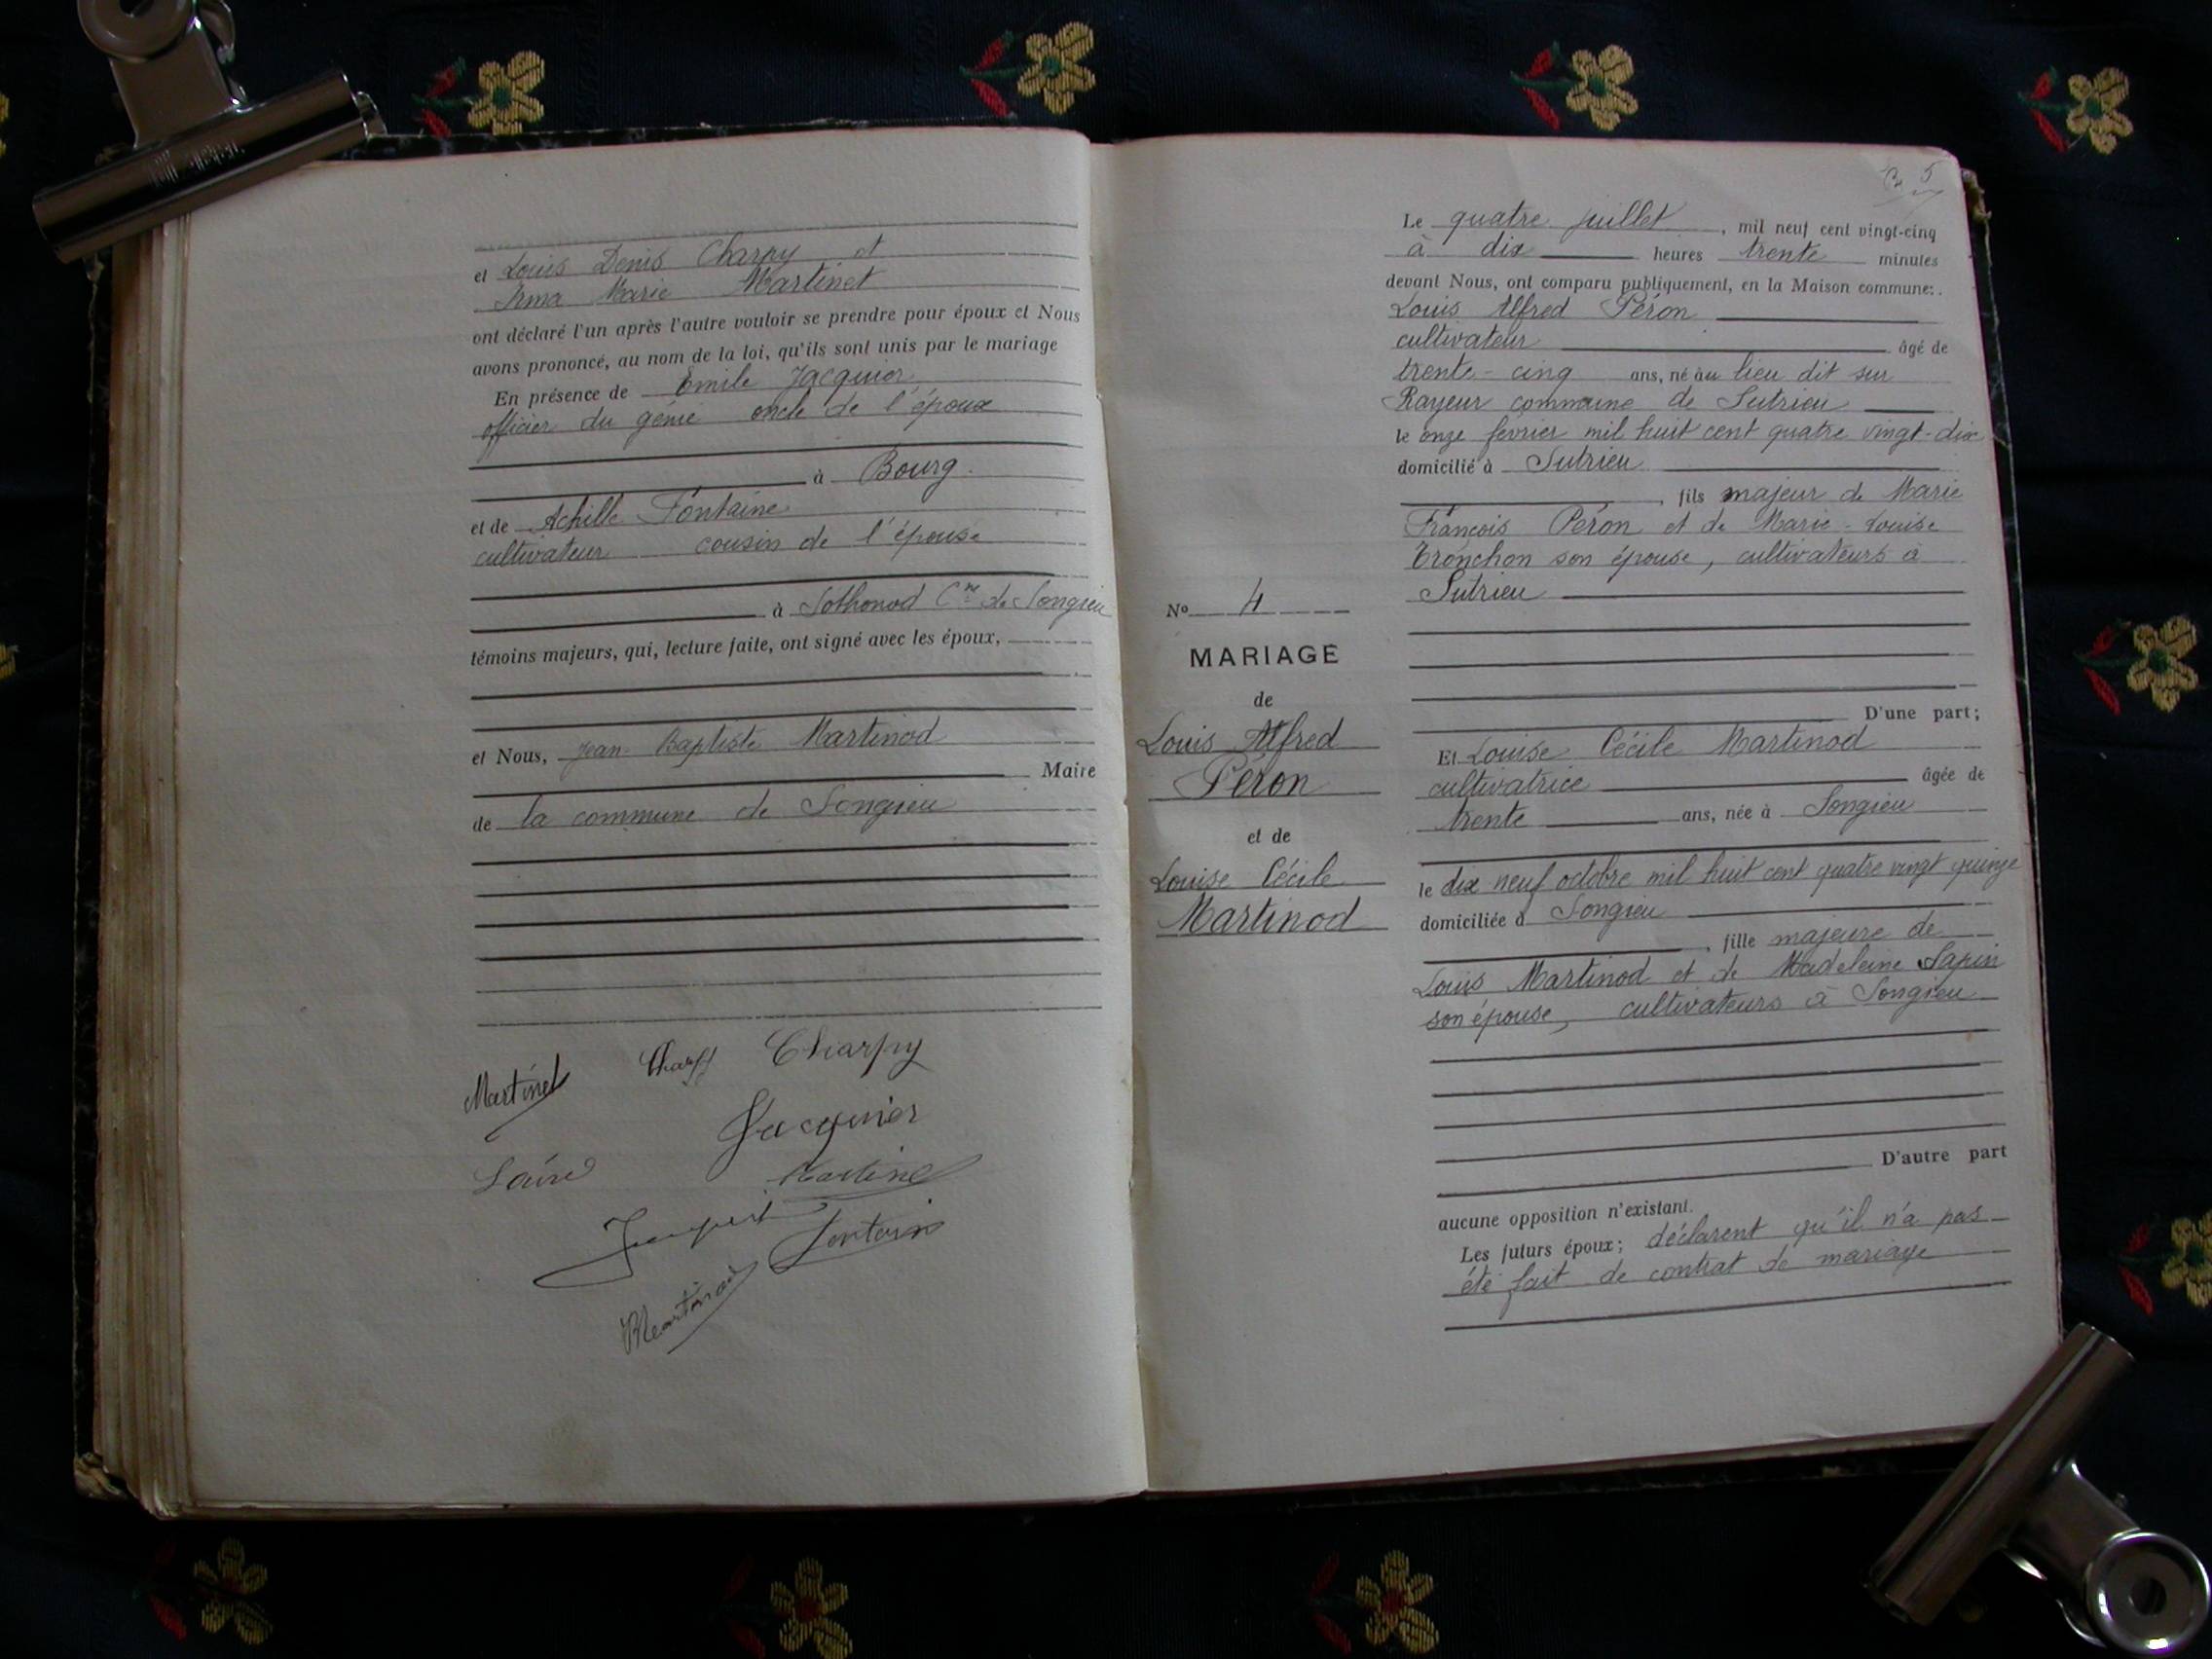 et Louis Denis Charpy et
Irma Marie Martinet
ont déclaré l'un après l'autre vouloir se prendre pour époux et Nous
avons prononcé, au nom de la loi, qu'ils sont unis par le mariage
En présence de Emile Jacquier
officier du génie oncle de l'époux
à Bourg.
et de Achille Fontaine
cultivateur cousin de l'épouse
à Sothonod Cne de Songieu
témoins majeurs, qui, lecture faite, ont signé avec les époux,
et Nous, Jean-Baptiste Martinod
Maire
de la commune de Songieu
Martinet Charpy Charpy
Jacquier
Martinet
Martinod
5
Le quatre juillet, mil neuf cent vingt-cinq
à dix heures trente minutes
devant Nous, ont comparu publiquement, en la Maison commune:
Louis Alfred Péron
cultivateur âgé de
trente-cinq ans, né au lieu dit sur
Rayeur commune de Sutrieu
le onze fevrier mil huit cent quatre vingt-dix
domicilié à Sutrieu
, fils majeur de Marie
François Péron et de Marie-Louise
Tronchon son épouse, cultivateurs à
Sutrieu
D'une part;
No 4
MARIAGE
de
Louis Alfred
Péron
et de
Louise Cécile
Martinod
Et Louise Cécile Martinod
cultivatrice âgée de
trente ans, née à Songieu
le dix neuf octobre mil huit cent quatre vingt quinze
domiciliée à Songieu
, fille majeure de
Louis Martinod et de Madeleine Sapin
son épouse, cultivateurs à Songieu
D'autre part
aucune opposition n'existant.
Les futurs époux; déclarent qu'il n'a pas
été fait de contrat de mariage